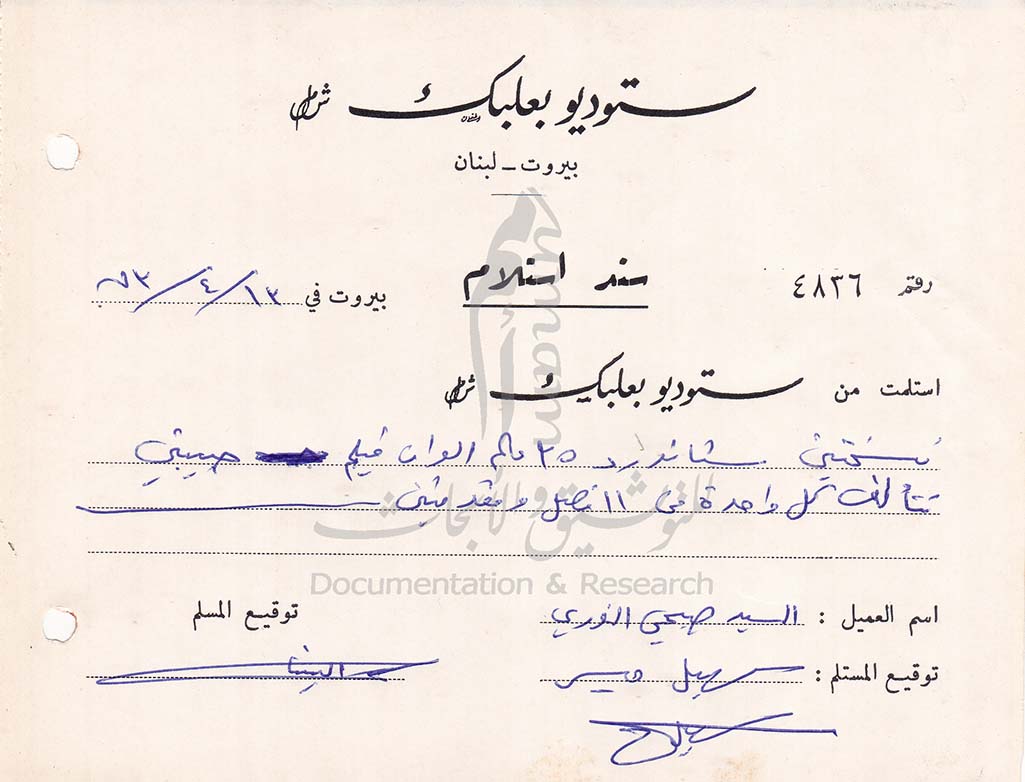 ستوديو بعلبك شمل
بيروت ـ لبنان
رقم ٤٨٣٦
سند استلام
بيروت في ١٣/٤/٧٣
استلمت من ستوديو بعلبك شمل
نسختين ستاندرد ٣٥ ملم الوان فيلم حبيبتي
تتألف كل واحدة من ١١ فصل ومقدمتين
للتوثيق والأبحاث
Documentation & Research
اسم العميل : السيد صبحي النوري
توقيع المسلم
توقيع المستلم : سهيل